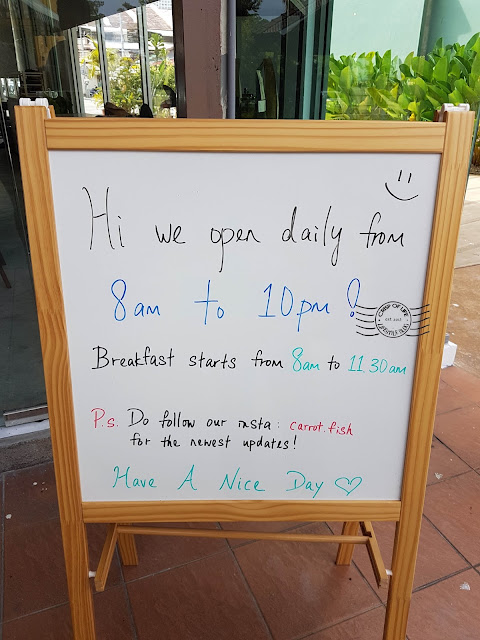 Hi we open daily from
8am to 10pm!
Breakfast starts from 8am to 11.30am
P.s. Do follow our insta: carrot.fish
for the newest updates!
Have A Nice Day ♡
CRISP OF LIFE
est 2013